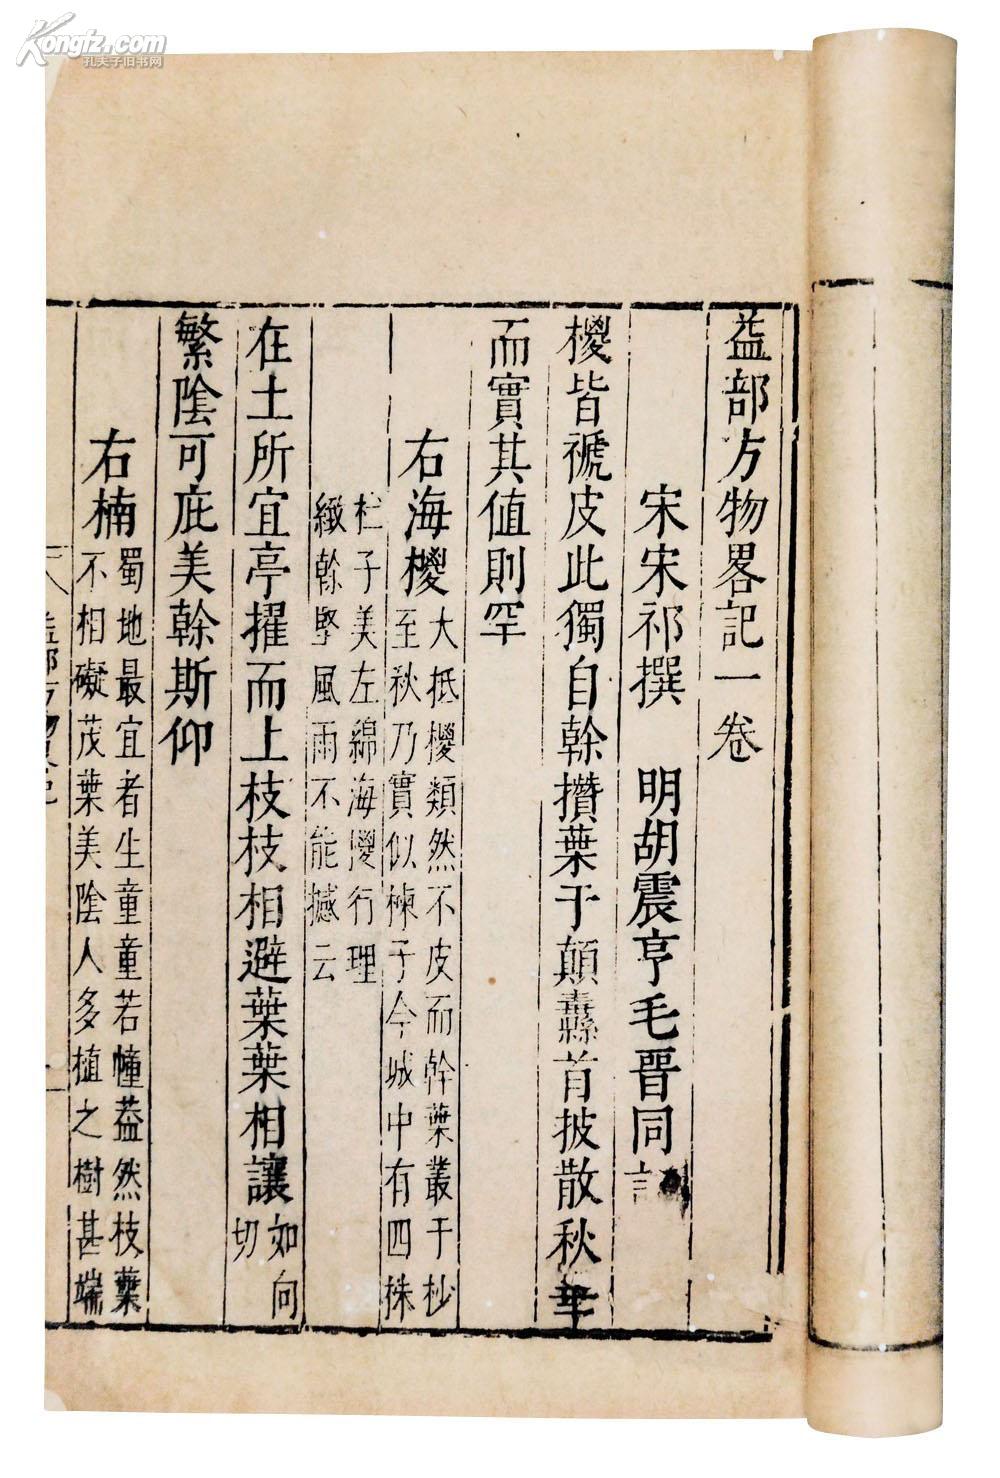 Kongfz.com
孔夫子旧书网
益部方物畧記一卷
宋宋祁撰　明胡震亨毛晉同
椶皆褫皮此獨自榦攢葉于顛纛首披散秋華
而實其值則罕
右海椶大抵椶類然不皮而幹葉叢于杪
至秋乃實似楝子今城中有四株
杜子美左綿海椶行理
緻榦堅風雨不能撼云
在土所宜亭擢而上枝枝相避葉葉相讓如向
切
繁陰可庇美榦斯仰
右楠蜀地最宜者生童童若幢葢然枝葉
不相礙茂葉美陰人多植之樹甚端
益部方物畧記